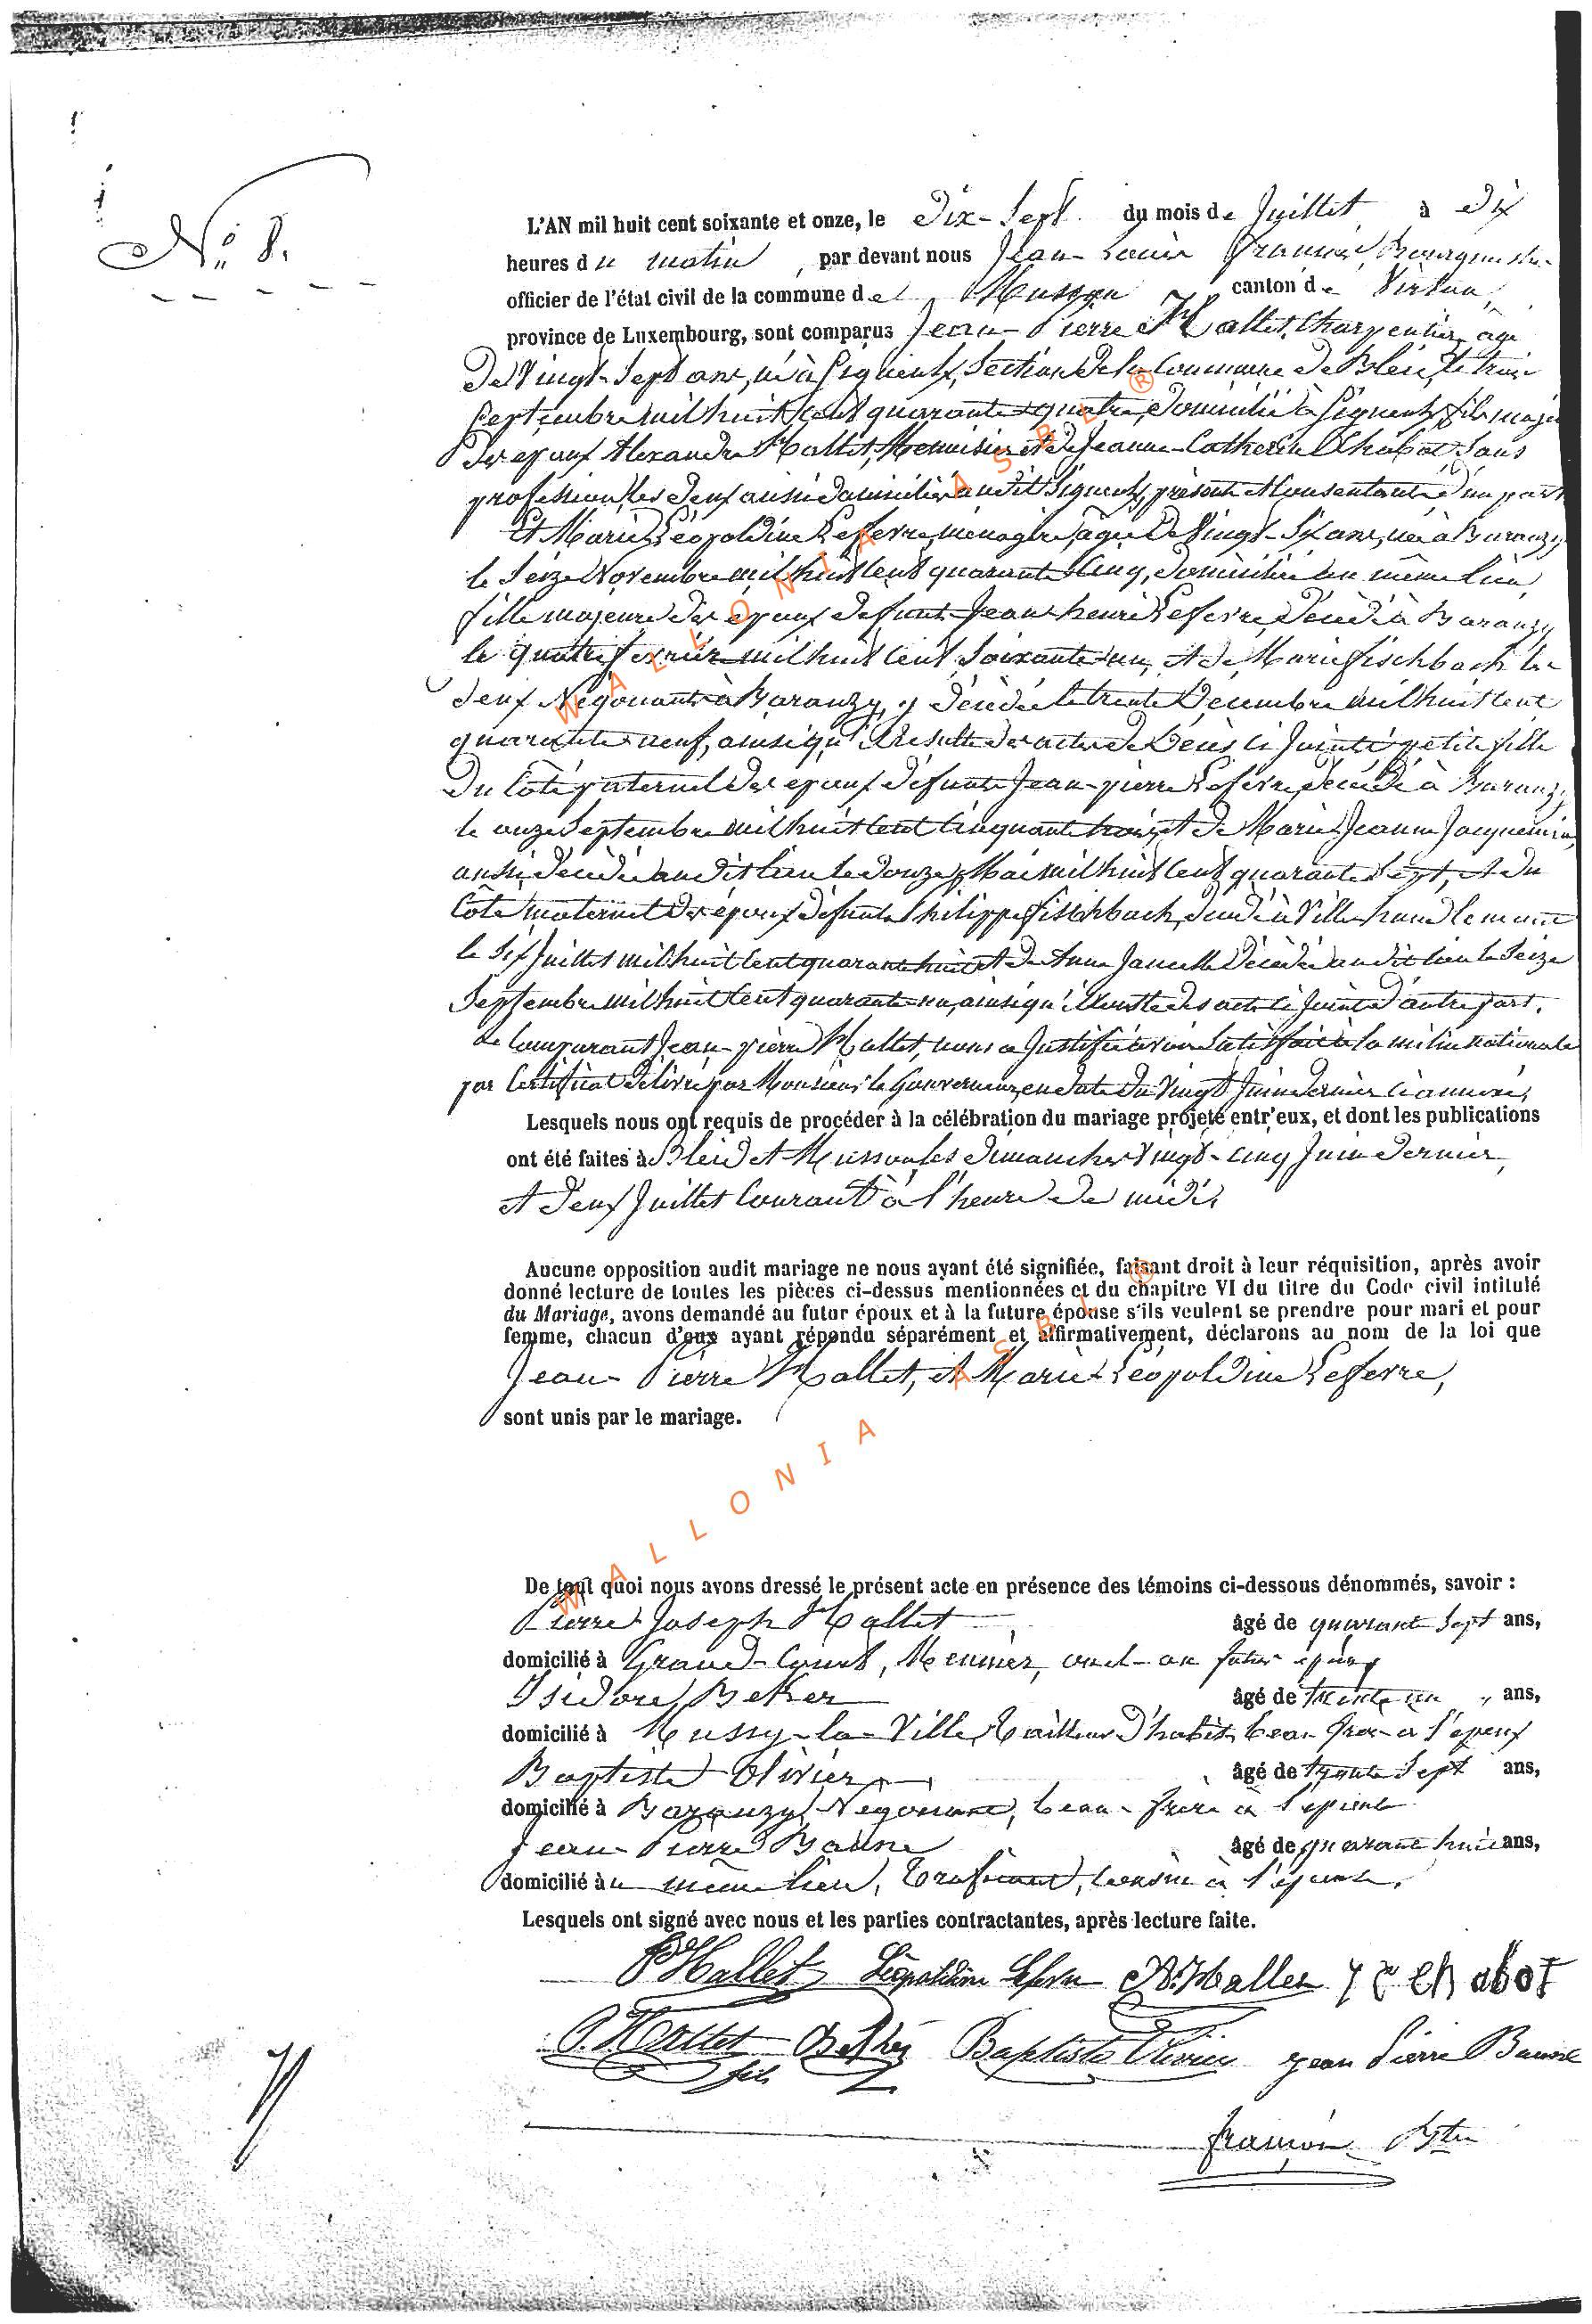 N° 8.
L'AN mil huit cent soixante et onze, le Dix-Sept du mois de Juillet à Dix
heures du matin, par devant nous Jean-Louis François, Bourgmestre
officier de l'état civil de la commune de Musson canton de Virton,
province de Luxembourg, sont comparus Jean-Pierre Hallet, Charpentier, âgé
de Vingt-Sept ans, né à Signeulx, Section de la Commune de Bleid, le trois
Septembre mil huit cent quarante-quatre, domicilié à Signeulx, fils majeur
des époux Alexandre Hallet, Menuisier et de Jeanne-Catherine Chabot, Sans
profession, les deux aussi domiciliés audit Signeulx, présents et consentants, d'une part
Et Marie Léopoldine Lefevre, ménagère, âgée de Vingt-Six ans, née à Baranzy
le Seize Novembre mil huit cent quarante Cinq, domiciliée au même lieu,
fille majeure des époux défunts Jean henri Lefevre, décédé à Baranzy
le quatre février mil huit cent soixante-un, et de Marie fischbach les
deux Négociants à Baranzy, y décédée le trente Décembre mil huit cent
quarante neuf, ainsi qu'il résulte des actes de décès ci joints; petite fille
du Côté paternel des époux défunts Jean-pierre Lefevre, décédé à Baranzy
le onze Septembre mil huit cent cinquante trois, et de Marie Jeanne Jacquemin,
aussi décédée audit lieu le douze Mai mil huit cent quarante Sept, et du
Côté maternel des époux défunts Philippe fischbach, décédé à Ville
le Six Juillet mil huit cent quarante huit et de Anne décédée audit lieu le Seize
Septembre mil huit cent quarante-un, ainsi qu'il conste des actes ci joints d'autre part.
le Comparant Jean-pierre Hallet, nous a Justifié avoir Satisfait à la milice nationale
par Certificat délivré par Monsieur le Gouverneur, en date du Vingt Juin dernier ci annexé,
Lesquels nous ont requis de procéder à la célébration du mariage projeté entr'eux, et dont les publications
ont été faites à Bleid et Musson les Dimanches Vingt-cinq Juin dernier,
et deux Juillet Courant à l'heure de midi.
Aucune opposition audit mariage ne nous ayant été signifiée, faisant droit à leur réquisition, après avoir
donné lecture de toutes les pièces ci-dessus mentionnées et du chapitre VI du titre du Code civil intitulé
du Mariage, avons demandé au futur époux et à la future épouse s'ils veulent se prendre pour mari et pour
femme, chacun d'eux ayant répondu séparément et affirmativement, déclarons au nom de la loi que
Jean-Pierre Hallet, et Marie-Léopoldine Lefevre,
sont unis par le mariage.
WALLONIA ASBL ®
WALLONIA ASBL ®
De tout quoi nous avons dressé le présent acte en présence des témoins ci-dessous dénommés, savoir :
Pierre-Joseph Hallet âgé de quarante Sept ans,
domicilié à Grand-Court, Meunier, oncle au futur époux
Isidore Beker âgé de trente un ans,
domicilié à Mussy-la-Ville, Tailleur d'habits, beau-frère à l'époux
Baptiste Olivier âgé de trente Sept ans,
domicilié à Baranzy, Négociant, beau-frère à l'épouse
Jean-Pierre Bausse âgé de quarante huit ans,
domicilié au même lieu, Trafiquant, cousin à l'épouse.
Lesquels ont signé avec nous et les parties contractantes, après lecture faite.
P Hallet Léopoldine Lefevre A. Hallet J C Chabot
P. Hallet fils Beker Baptiste Olivier jean Pierre Bausse
françois Btre